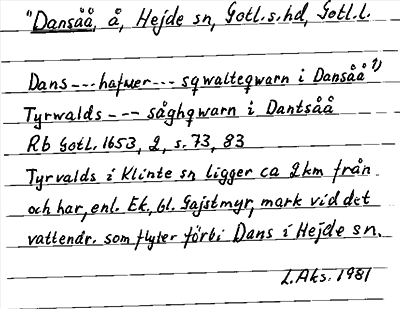 "Dansåå, å, Hejde sn, Gotl.s.hd, Gotl.l.
Dans --- hafuer --- sqwalteqwarn i Dansåå 1)
Tyrwalds --- såghqwarn i Dantsåå
Rb Gotl. 1653, 2, s. 73, 83
Tyrvalds i Klinte sn ligger ca 2 km från
och har, enl. Ek., bl. Gajstmyr, mark vid det
vattendr. som flyter förbi Dans i Hejde sn.
L.Aks. 1981